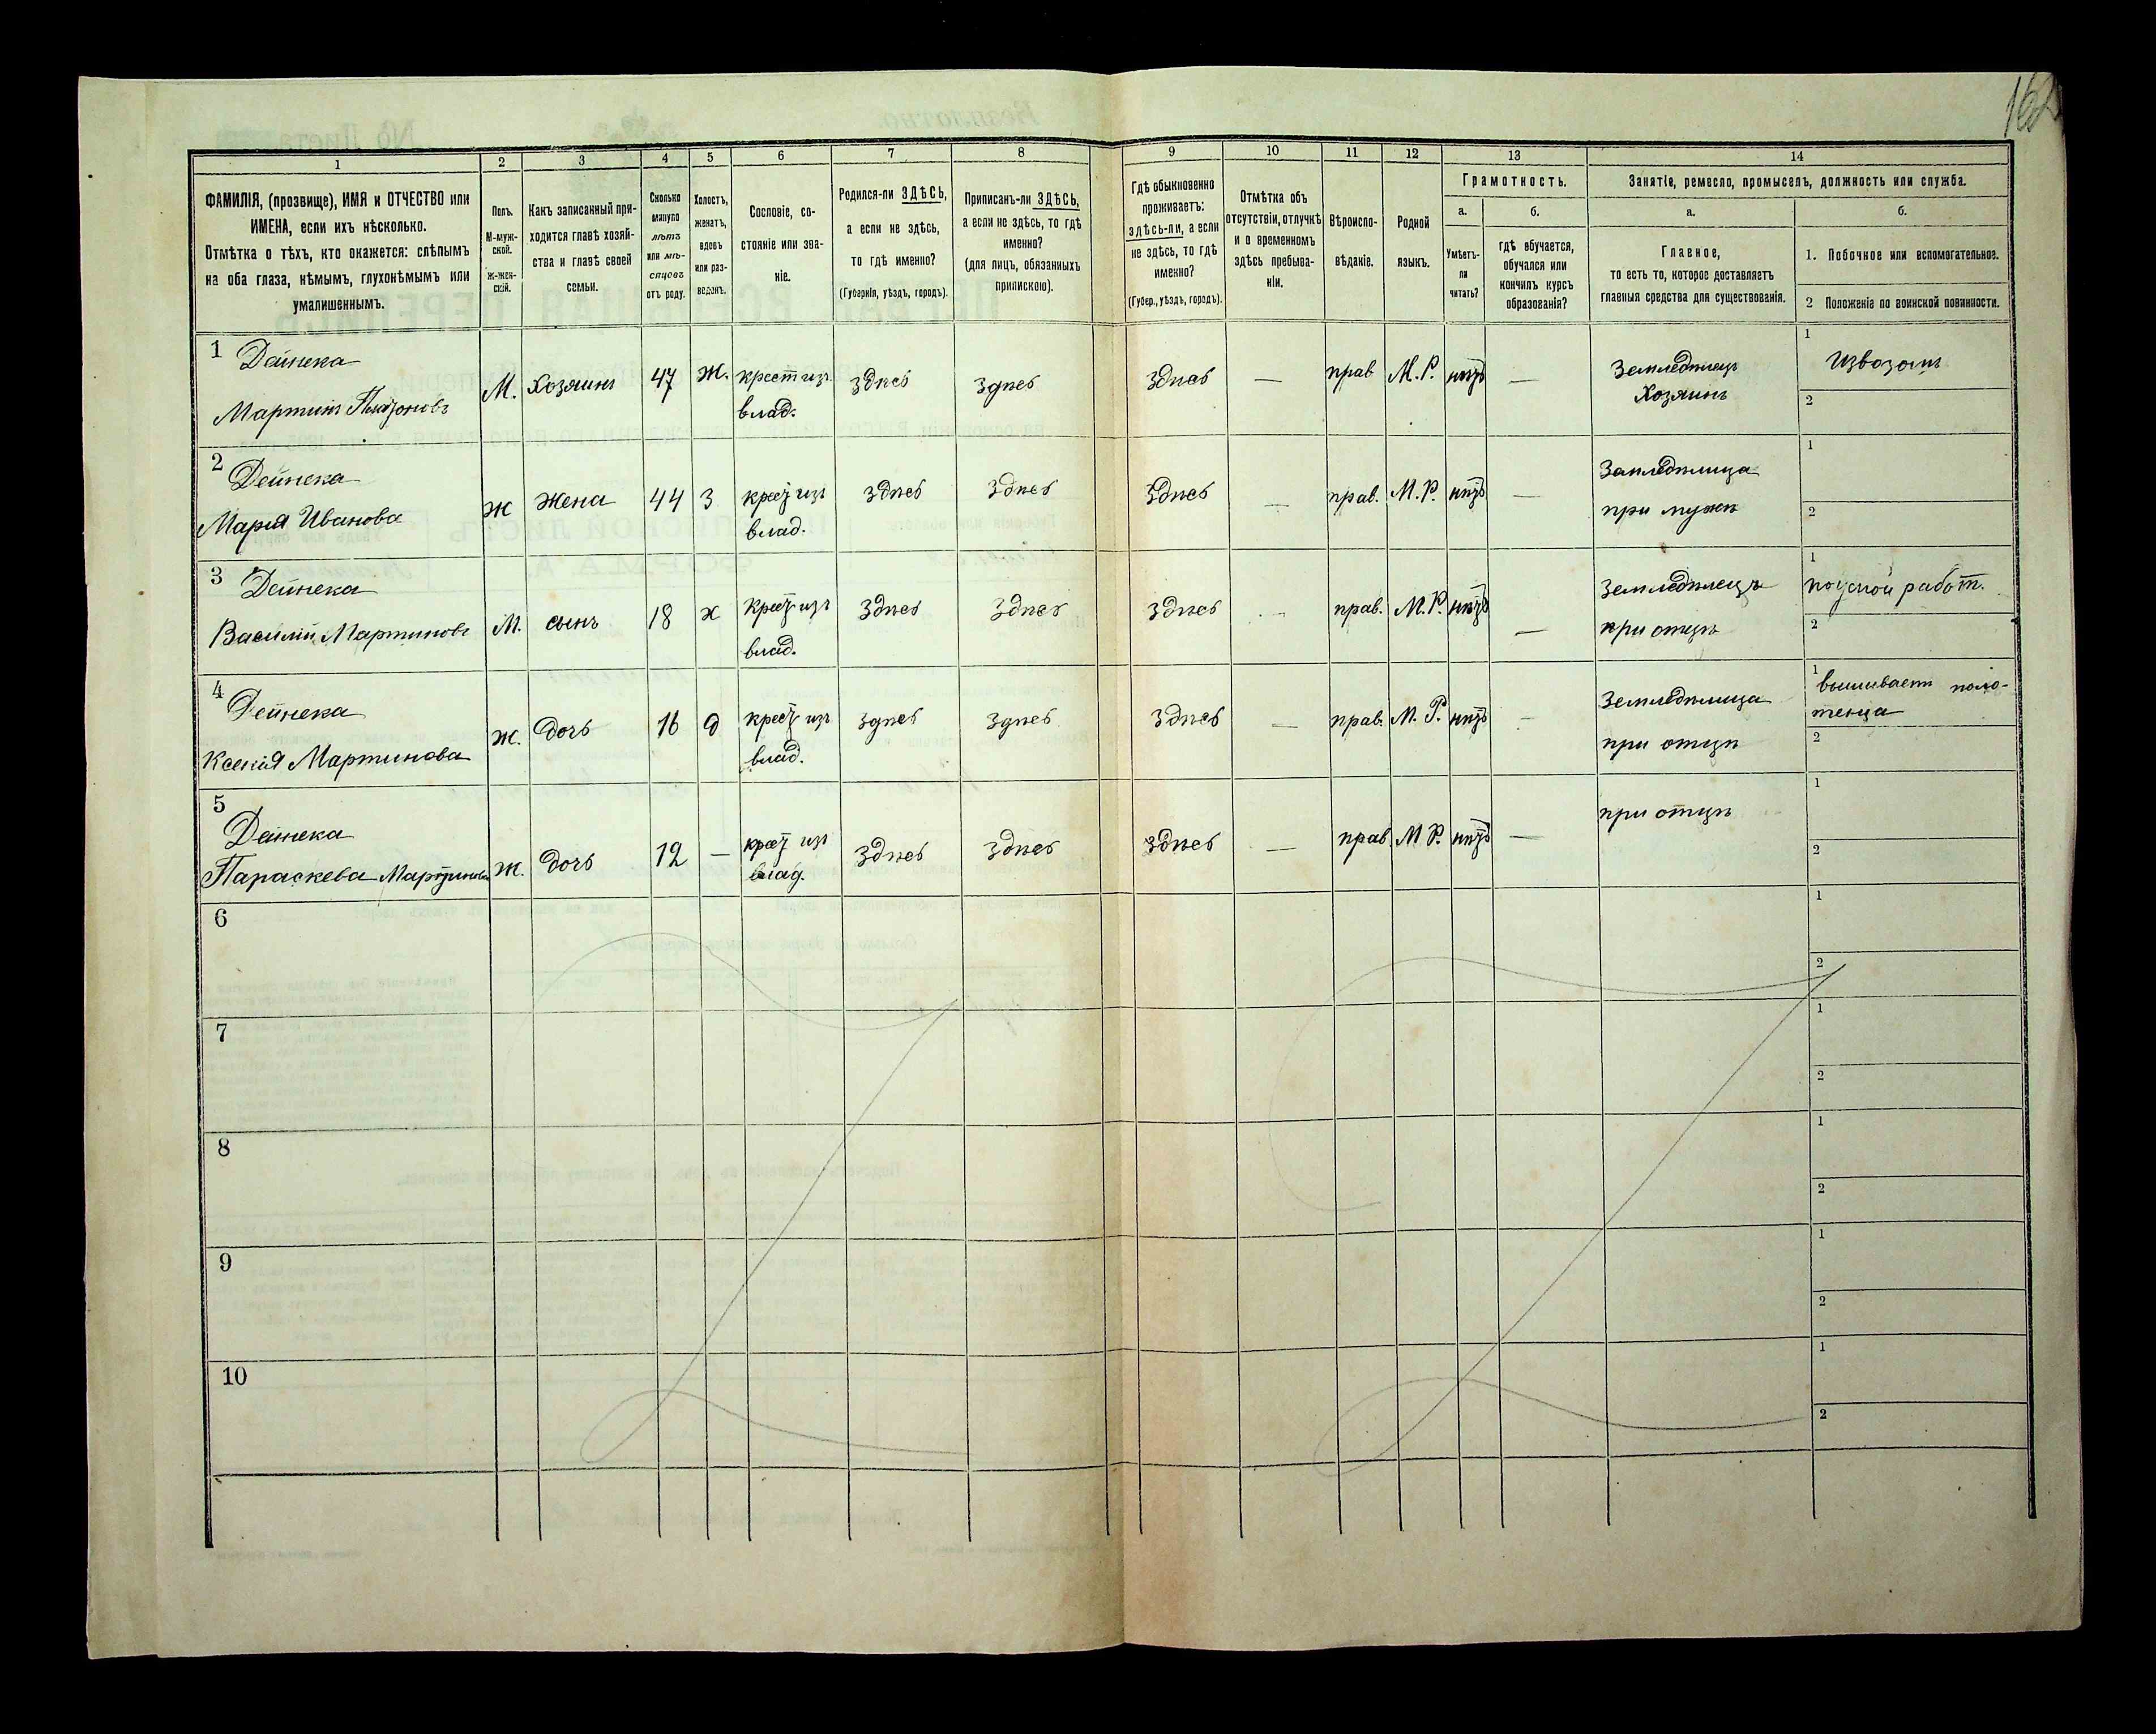 162
1 2 3 4 5 6 7 8 9 10 11 12 13 14
ФАМИЛІЯ, (прозвище), ИМЯ и ОТЧЕСТВО или
ИМЕНА, если ихъ нѣсколько.
Отмѣтка о тѣхъ, кто окажется: слѣпымъ
на оба глаза, нѣмымъ, глухонѣмымъ или
умалишеннымъ.
Полъ.
М-муж-
ской.
Ж-жен-
скій.
Какъ записанный при-
ходится главѣ хозяй-
ства и главѣ своей
семьи.
Сколько
минуло
лѣтъ
или мѣ-
сяцевъ
отъ роду.
Холостъ,
женатъ,
вдовъ
или раз-
веденъ.
Сословіе, со-
стояніе или зва-
ніе.
Родился-ли ЗДѢСЬ,
а если не здѣсь,
то гдѣ именно?
(Губернія, уѣздъ, городъ).
Приписанъ-ли ЗДѢСЬ,
а если не здѣсь, то гдѣ
именно?
(для лицъ, обязанныхъ
припискою).
Гдѣ обыкновенно
проживаетъ:
здѣсь-ли, а если
не здѣсь, то гдѣ
именно?
(Губер., уѣздъ, городъ).
Отмѣтка объ
отсутствіи, отлучкѣ
и о временномъ
здѣсь пребыва-
ніи.
Вѣроиспо-
вѣданіе.
Родной
языкъ.
Грамотность.
а.
Умѣетъ-
ли
читать?
б.
гдѣ обучается,
обучался или
кончилъ курсъ
образованія?
Занятіе, ремесло, промыселъ, должность или служба.
а.
Главное,
то есть то, которое доставляетъ
главныя средства для существованія.
б.
1. Побочное или вспомогательное.
2 Положеніе по воинской повинности.
1 Дейнека
Мартинъ Платоновъ
М. Хозяинъ 47 Ж. крест изъ
влад.
здѣсь здѣсь здѣсь — прав М. Р. нѣтъ —
Земледѣлецъ
Хозяинъ
1 Извозомъ
2
2 Дейнека
Марія Иванова
Ж Жена 44 З крест изъ
влад.
здѣсь здѣсь здѣсь — прав. М. Р. нѣтъ —
Земледѣлица
при мужѣ
1
2
3 Дейнека
Василій Мартиновъ
М. сынъ 18 х крест изъ
влад.
здѣсь здѣсь здѣсь — прав. М. Р. нѣтъ —
Земледѣлецъ
при отцѣ
1 работ.
2
4 Дейнека
Ксенія Мартинова
Ж. дочь 16 д крест изъ
влад.
здѣсь здѣсь здѣсь — прав. М. Р. нѣтъ —
Земледѣлица
при отцѣ
1 вышиваетъ поло-
тенца
2
5 Дейнека
Параскева Мартинова
Ж. дочь 12 — крест изъ
влад.
здѣсь здѣсь здѣсь — прав. М Р. нѣтъ —
при отцѣ
1
2
6
1
2
7
1
2
8
1
2
9
1
2
10
1
2